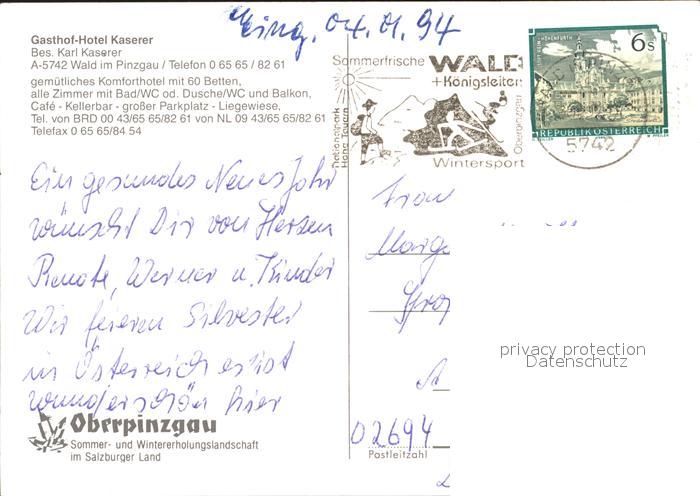 Eing. 04.01.94
Gasthof-Hotel Kaserer
Bes. Karl Kaserer
A-5742 Wald im Pinzgau / Telefon 0 65 65 / 82 61
gemütliches Komforthotel mit 60 Betten,
alle Zimmer mit Bad/WC od. Dusche/WC und Balkon,
Café - Kellerbar - großer Parkplatz - Liegewiese,
Tel. von BRD 00 43/65 65/82 61 von NL 09 43/65 65/82 61
Telefax 0 65 65/84 54
Sommerfrische WALD
+Königsleiten
Nationalpark
Hohe Tauern
Oberpinzgau
Wintersport
STIFT REIN-HOHENFURTH
6s
REPUBLIK ÖSTERREICH
5742
Ein gesundes Neues Jahr
wünscht Dir von Herzen
Renate, Werner u. Kinder
Wir feiern Silvester
in Österreich es ist
wunderschön hier
Oberpinzgau
Sommer- und Wintererholungslandschaft
im Salzburger Land
Frau
Marg
02694
Postleitzahl
privacy protection
Datenschutz